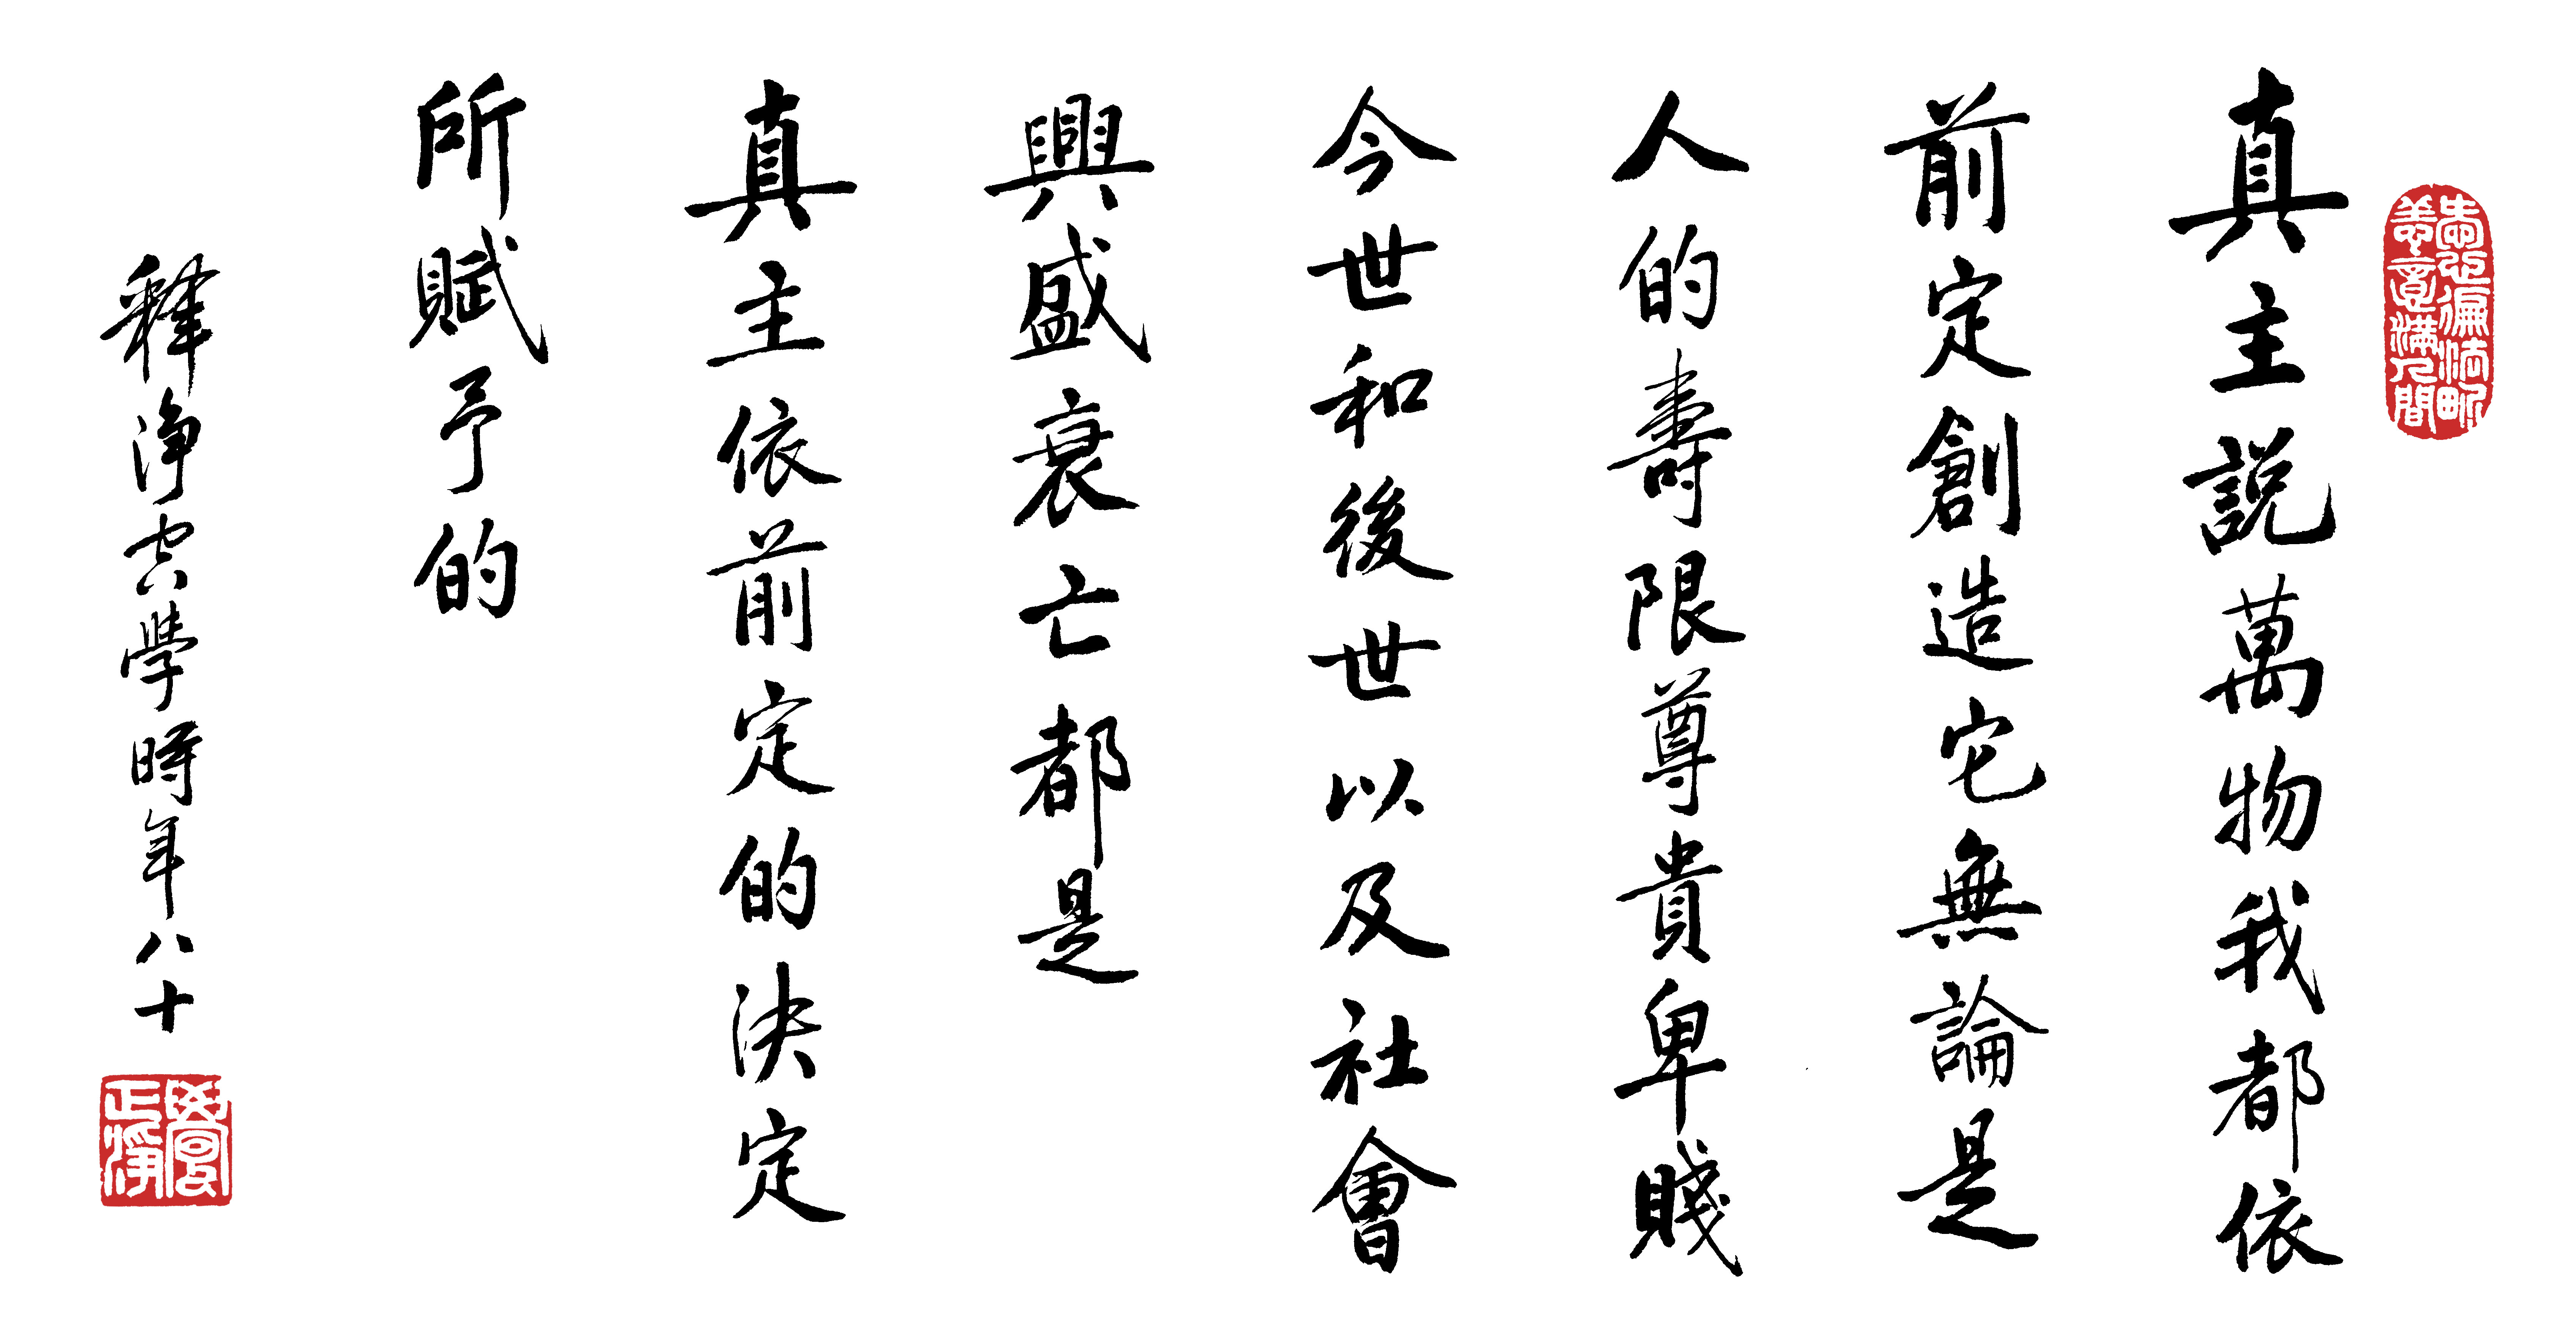 真主説萬物我都依
前定創造它無論是
人的壽限尊貴卑賤
今世和後世以及社會
興盛衰亡都是
真主依前定的決定
所賦予的
釋淨空學時年八十